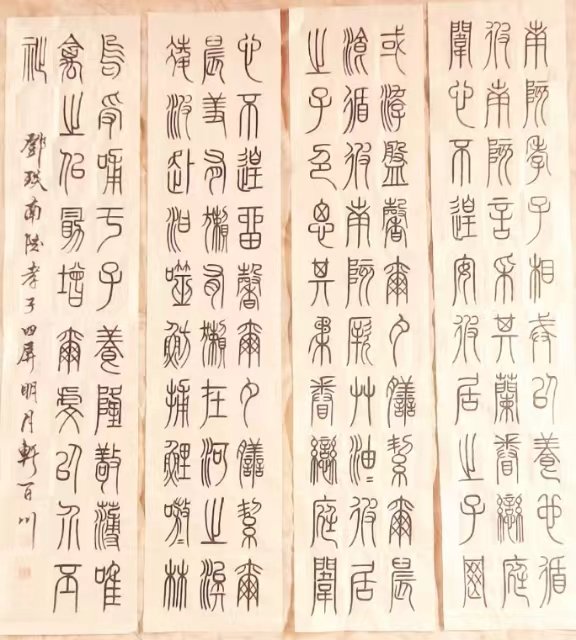 南陔孝子相戒以養也循
彼南陔言采其蘭眷戀庭
闈心不遑安彼居之子罔
或游盤馨爾夕膳絜爾晨
飡循彼南陔厥艸油油彼居
之子色思其柔眷戀庭闈
心不遑留馨爾夕膳絜爾
晨羞有獺有獺在河之涘
淩波赴汨噬魴捕鯉嗷嗷林
烏受哺于子養隆敬薄唯
禽之佀勖增爾虔以介丕
祉
鄧琰南陔孝子四屏明月軒百川